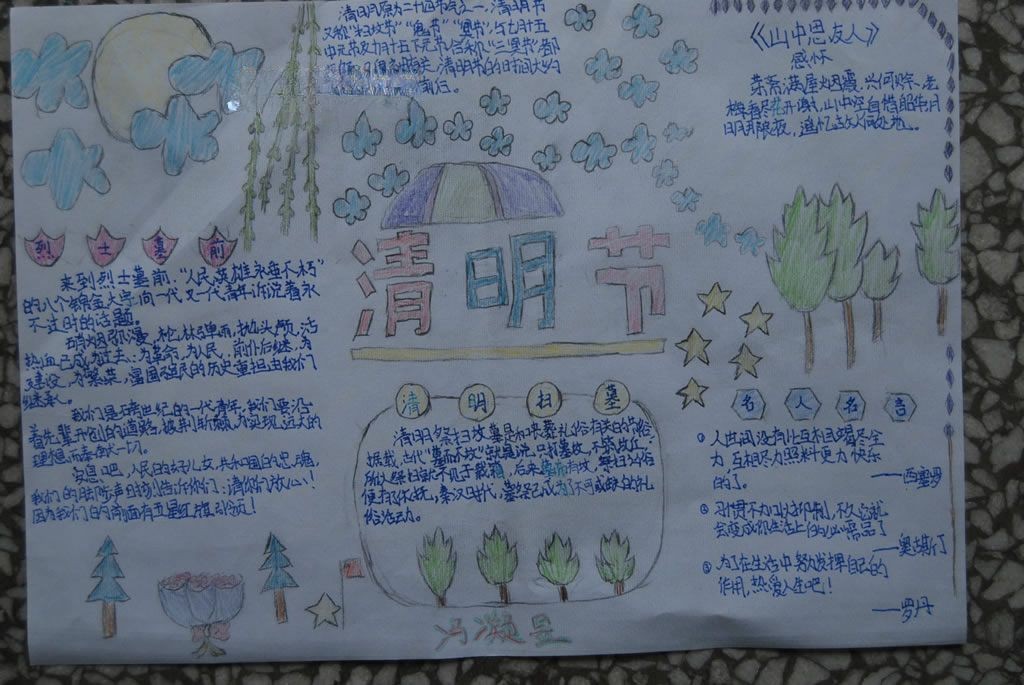 清明原为二十四节气之一,清明节
又称“扫坟节”“鬼节”“冥节”,与七月十五
中元节及十月十五下元节合称“三冥节”都
清明节的时间大约
《山中思友人》
感怀
茶斋满屋烟霞,兴何赊,老
梅看尽花开谢,山中空自惜韶华,月
明良夜,追忆故人何处也。
清明节
烈士墓前
来到烈士墓前,“人民英雄永垂不朽”
的八个镏金大字,向一代又一代青年诉说着永
不过时的话题。
硝烟弥漫,枪林弹雨,抛头颅,洒
热血已成为过去;为革命,为人民,前仆后继,为
建设,为繁荣,富国强民的历史重担由我们
继承。
我们是跨世纪的一代青年,我们要沿
着先辈开创的道路,披荆斩棘,为实现远大的
理想而奉献一切。
安息吧,人民的好儿女,共和国的忠魂,
我们的脚步声时刻告诉你们:请你们放心!
因为我们的前面有五星红旗引领!
清明扫墓
清明祭扫坟墓是和丧葬礼俗有关的节俗。
据载,古代“墓而不坟”就是说只打墓坑,不筑坟丘,
所以祭扫就不见于载籍。后来墓而且坟,祭扫之俗
便有了依托。秦汉时代,墓祭已成为了不可或缺的礼
俗活动。
名人名言
① 人世间没有比互相竭尽全
力、互相尽力照料更加快乐
的了。
——西塞罗
② 习惯不加以抑制,不久它就
会变成你生活上的必需品了
——奥古斯丁
③ 为了在生活中努力发挥自己的
作用,热爱人生吧!
——罗丹
冯凝昱